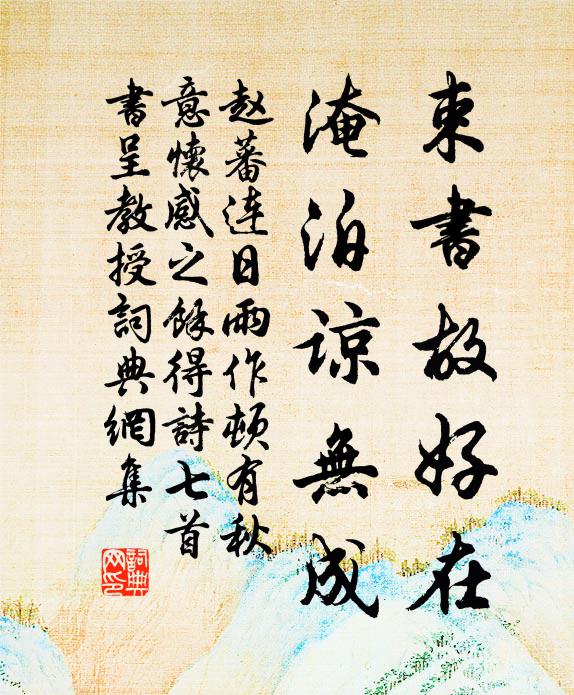 束書故好在
淹泊諒無成
赵蕃连日雨作頓有秋
意懷感之餘得詩七首
書呈教授詞典網集
詞典
网印